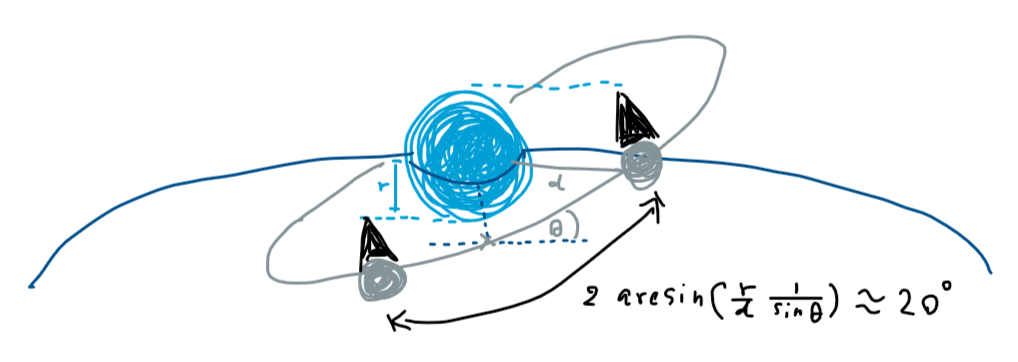 r
d
θ
2 arcsin(r/d 1/sinθ) ≈ 20°